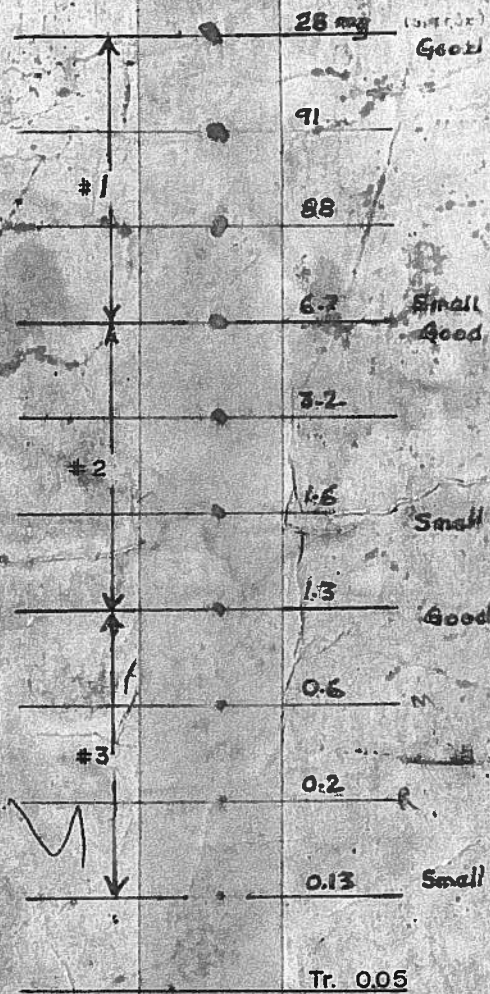 28 mg
Good
91
#1
88
6.7 Small
Good
3.2
#2
1.6
Small
1.3
Good
0.6
#3
0.2
0.13 Small
Tr. 0.05